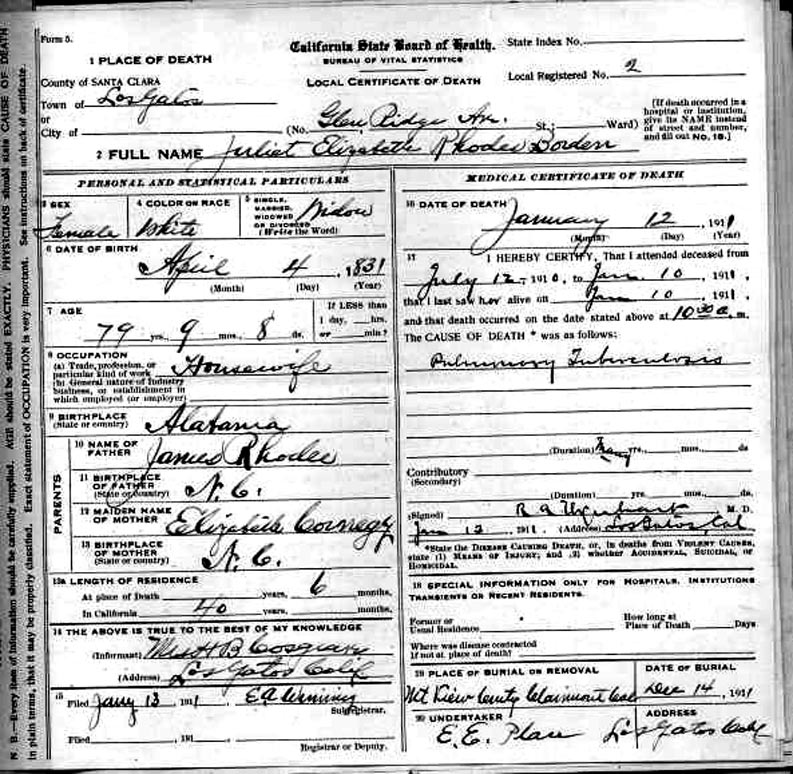 Form 5.
California State Board of Health.
State Index No.
BUREAU OF VITAL STATISTICS
LOCAL CERTIFICATE OF DEATH
Local Registered No. 2
1 PLACE OF DEATH
County of SANTA CLARA
Town of Los Gatos
or
City of
(No. Glen Ridge Av. St.; Ward)
[If death occurred in a hospital or institution, give its NAME instead of street and number, and fill out No. 18.]
2 FULL NAME Juliet Elizabeth Rhodes Borden
PERSONAL AND STATISTICAL PARTICULARS
3 SEX
Female
4 COLOR OR RACE
White
5 SINGLE, MARRIED, WIDOWED OR DIVORCED
Widow
(Write the Word)
6 DATE OF BIRTH
April 4, 1831
(Month) (Day) (Year)
7 AGE
79 yrs. 9 mos. 8 ds.
If LESS than
1 day, hrs.
or min.?
8 OCCUPATION
(a) Trade, profession, or
particular kind of work Housewife
(b) General nature of industry
business, or establishment in
which employed (or employer)
9 BIRTHPLACE
(State or country) Alabama
PARENTS
10 NAME OF
FATHER James Rhodes
11 BIRTHPLACE
OF FATHER
(State or country) N. C.
12 MAIDEN NAME
OF MOTHER Elizabeth Cornegy
13 BIRTHPLACE
OF MOTHER
(State or country) N. C.
13a LENGTH OF RESIDENCE
At place of Death years, 6 months.
In California 40 years, months.
14 THE ABOVE IS TRUE TO THE BEST OF MY KNOWLEDGE
(Informant) Mrs H B Cosgrave
(Address) Los Gatos Calif
15
Filed Jany 13, 1911 E A
Subregistrar.
Filed , 191
Registrar or Deputy.
MEDICAL CERTIFICATE OF DEATH
16 DATE OF DEATH
January 12, 1911
(Month) (Day) (Year)
17
I HEREBY CERTIFY, That I attended deceased from
July 12, 1910, to Jan 10 1911,
that I last saw her alive on Jan 10 1911,
and that death occurred on the date stated above at 10 30 a. m.
The CAUSE OF DEATH * was as follows:
Pulmonary Tuberculosis
(Duration) Many yrs. mos. ds
Contributory
(Secondary)
(Duration) yrs. mos. ds.
(Signed) R A Urquhart M. D.
Jan 12, 1911 (Address) Los Gatos Cal
*State the DISEASE CAUSING DEATH, or, in deaths from VIOLENT CAUSES,
state (1) MEANS OF INJURY; and (2) whether ACCIDENTAL, SUICIDAL, or
HOMICIDAL.
18 SPECIAL INFORMATION ONLY FOR HOSPITALS, INSTITUTIONS
TRANSIENTS OR RECENT RESIDENTS.
Former or
Usual Residence
How long at
Place of Death Days
Where was disease contracted
if not at place of death?
19 PLACE OF BURIAL OR REMOVAL
Mt View
DATE OF BURIAL
Dec 14, 1911
20 UNDERTAKER
E. E. Place
ADDRESS
Los Gatos Calif
N. B.—Every item of information should be carefully supplied. AGE should be stated EXACTLY. PHYSICIANS should state CAUSE OF DEATH
in plain terms, that it may be properly classified. Exact statement of OCCUPATION is very important. See instructions on back of certificate.